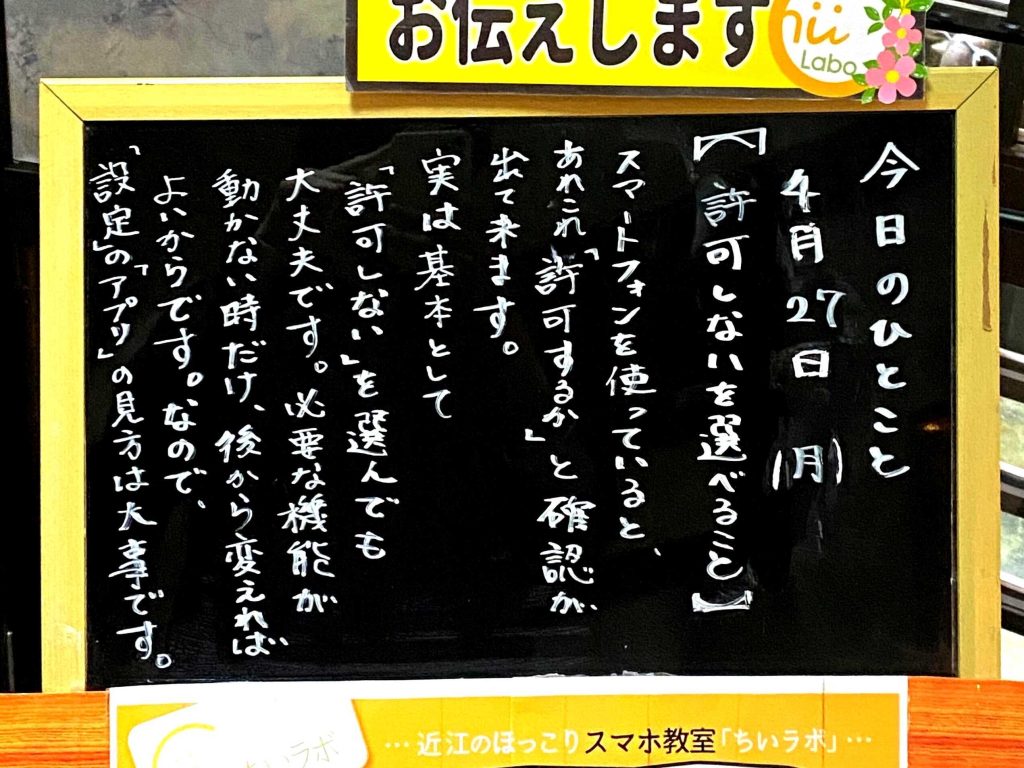 お伝えします
hii
Labo
今日のひとこと
4月27日(月)
【許可しないを選べること】
スマートフォンを使っていると、
あれこれ「許可するか」と確認が
出て来ます。
実は基本として
「許可しない」を選んでも
大丈夫です。必要な機能が
動かない時だけ、後から変えれば
よいからです。なので、
「設定」の「アプリ」の見方は大事です。
…近江のほっこりスマホ教室「ちいラボ」…
ちいラボ